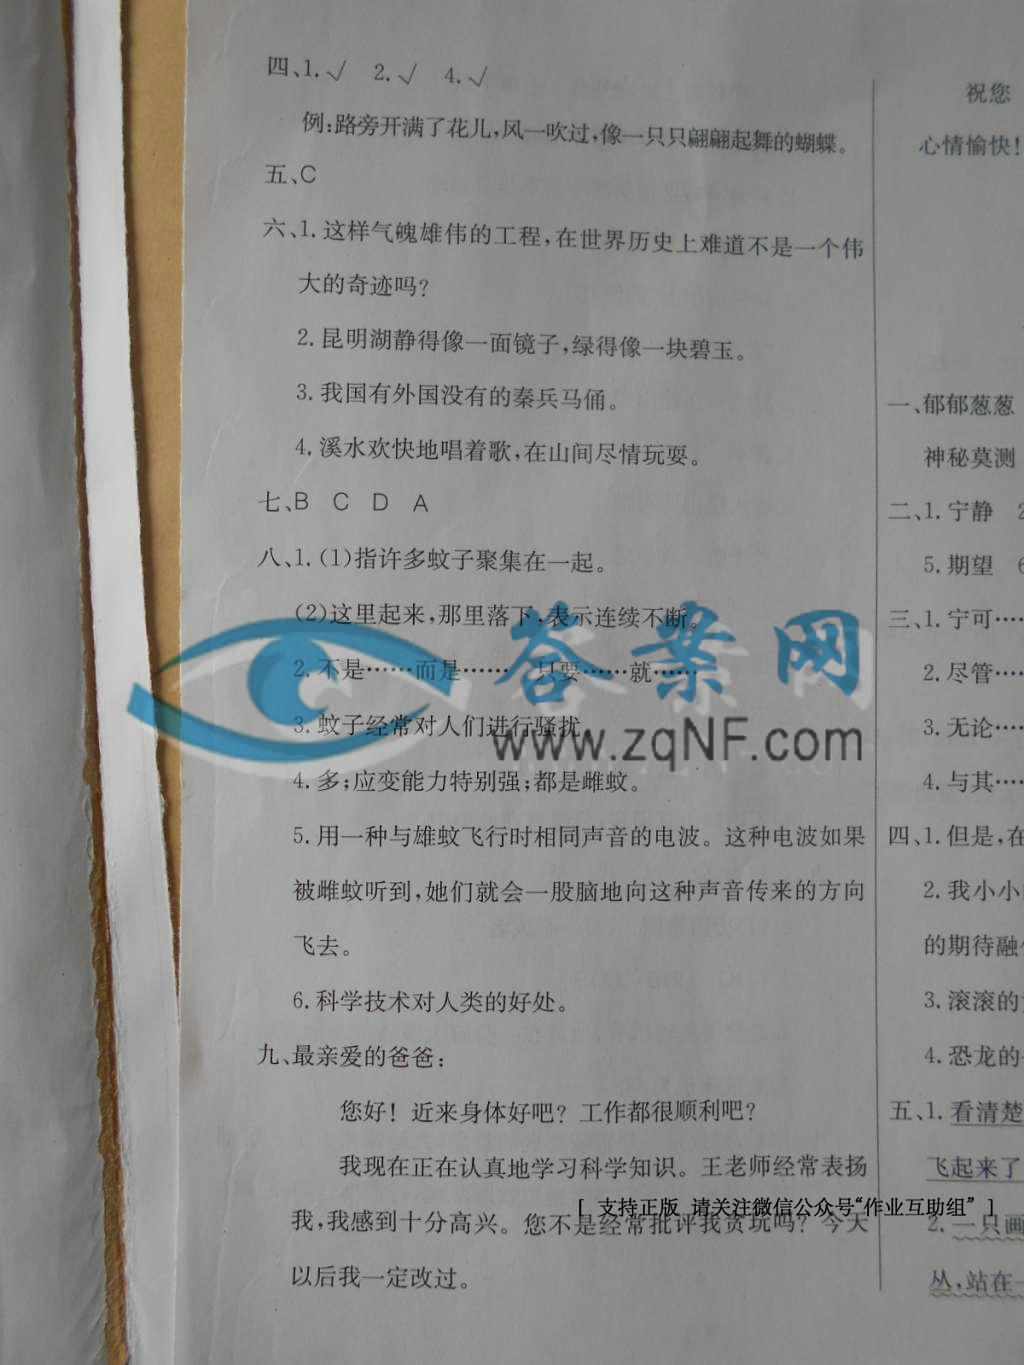 四、1.√ 2.√ 4.√
例:路旁开满了花儿,风一吹过,像一只只翩翩起舞的蝴蝶。
五、C
六、1.这样气魄雄伟的工程,在世界历史上难道不是一个伟
大的奇迹吗?
2.昆明湖静得像一面镜子,绿得像一块碧玉。
3.我国有外国没有的秦兵马俑。
4.溪水欢快地唱着歌,在山间尽情玩耍。
七、B C D A
八、1.(1)指许多蚊子聚集在一起。
(2)这里起来,那里落下,表示连续不断。
2.不是……而是…… 只要……就……
3.蚊子经常对人们进行骚扰
4.多;应变能力特别强;都是雌蚊。
5.用一种与雄蚊飞行时相同声音的电波。这种电波如果
被雌蚊听到,她们就会一股脑地向这种声音传来的方向
飞去。
6.科学技术对人类的好处。
九、最亲爱的爸爸:
您好! 近来身体好吧? 工作都很顺利吧?
我现在正在认真地学习科学知识。王老师经常表扬
我,我感到十分高兴。您不是经常批评我贪玩吗? 今天
以后我一定改过。
祝您
心情愉快!
一、郁郁葱葱
神秘莫测
二、1.宁静 2
5.期望 6
三、1.宁可……
2.尽管……
3.无论……
4.与其……
四、1.但是,在
2.我小小
的期待融
3.滚滚的
4.恐龙的
五、1.看清楚
飞起来了
2.一只画
丛,站在一
答案网
www.zqNF.com
[ 支持正版 请关注微信公众号“作业互助组” ]